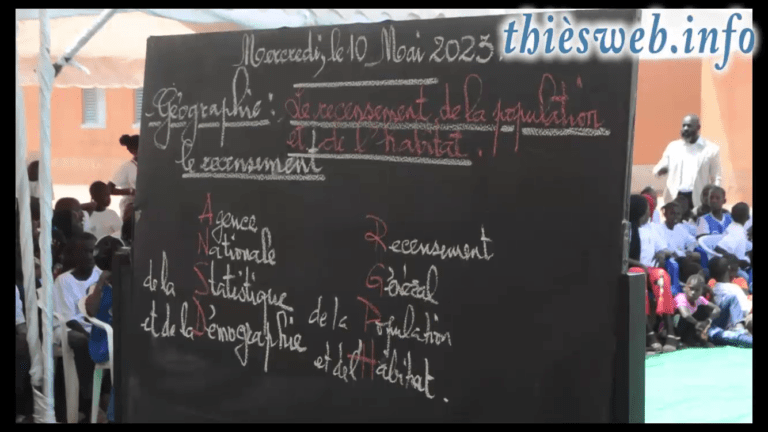 thièsweb.info
Mercredi, le 10 Mai 2023.
Géographie : Le recensement de la population
et de l'habitat.
le recensement
Agence
Nationale
de la Statistique
et de la Démographie
Recensement
Général
de la Population
et de l'Habitat.